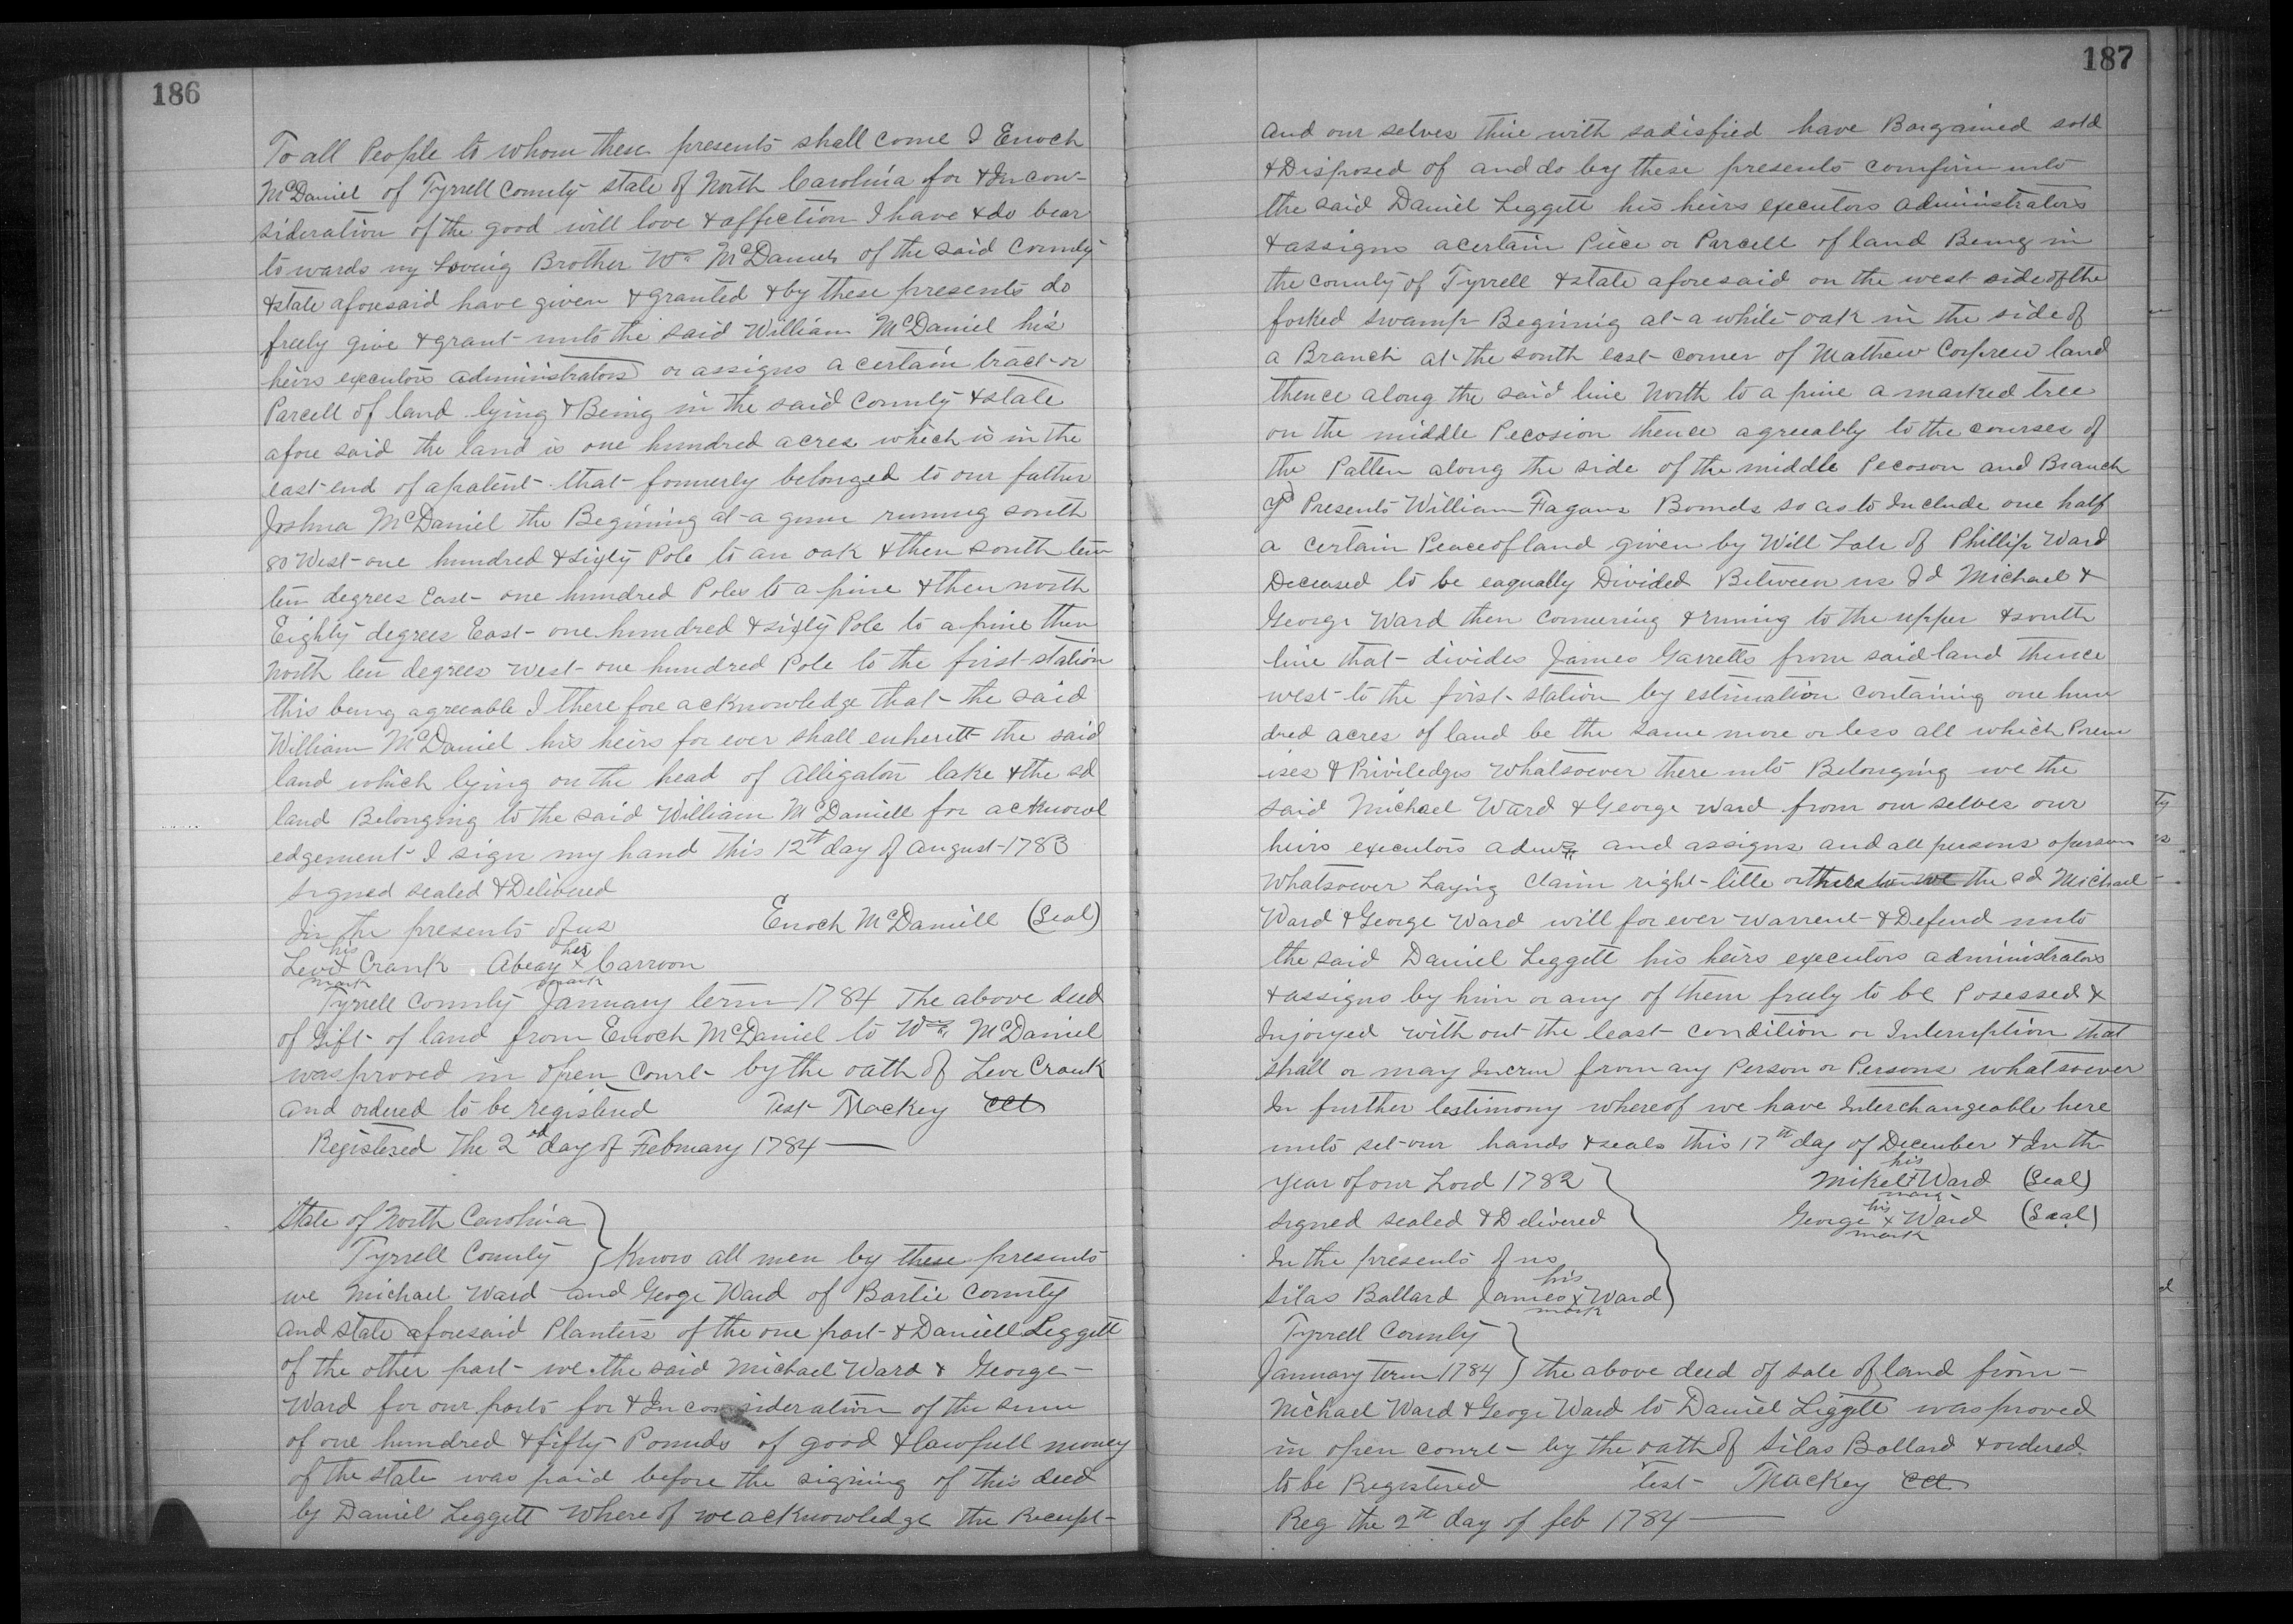 186
To all People to whom these presents shall come I Enoch
McDaniel of Tyrrell County state of North Carolina for & In con-
sideration of the good will love & affection I have & do bear
to wards my Loveig Brother Wm McDaniel of the said County
& state aforesaid have given & granted & by these presents do
freely give & grant unto the said William McDaniel his
heirs executors administrators or assigns a certain tract or
Parcell of land lying & Being in the said County & state
afore said the land is one hundred acres which is in the
east end of a patent that formerly belonged to our father
Joshua McDaniel the Begining at a gum runing south
80 West one hundred & sixty Pole to an oak & then south ten
ten degrees East one hundred Poles to a pine & then north
Eighty degrees East one hundred & sixty Pole to a pine then
North ten degrees West one hundred Pole to the first station
this being agreeable I there fore acknowledge that the said
William McDaniel his heirs for ever shall enherett the said
land which lying on the head of Alligator lake & the sd
land Belonging to the said William McDaniell for acknowl
edgement I sign my hand this 12th day of August 1783
Signed sealed & Delivered
In the presents of us Enoch McDaniell (Seal)
his her
Levi x Crank Abeay x Carroon
mark mark
Tyrrell County January term 1784 The above deed
of Gift of land from Enoch McDaniel to Wm McDaniel
was proved in open Court by the oath of Levi Crank
and ordered to be registered Test Mackey CCt
Registered the 2nd day of February 1784
State of North Carolina }
Tyrrell County } Know all men by these presents
we Michael Ward and George Ward of Bartie County
and state aforesaid Planters of the one part & Daniell Leggett
of the other part we the said Michael Ward & George
Ward for our parts for & In consideration of the sum
of one hundred & fifty Pounds of good & lawfull money
of the state was paid before the signing of this deed
by Daniel Leggett where of we acknowledge the Receipt
187
and our selves thire with sadisfied have Bargained sold
& Disposed of and do by these presents comfirm unto
the said Daniel Leggett his heirs executors administrators
& assigns a certain Piece or Parcell of land Being in
the county of Tyrrell & state aforesaid on the west side of the
forked swamp Begining at a white oak in the side of
a Branch at the south east corner of Mathew Corprew land
thence along the said line North to a pine a marked tree
on the middle Pecosion thence agreeably to the courses of
the Patten along the side of the middle Pecoson and Branch
Presents William Fagans Bounds so as to Include one half
a certain Peace of land given by Will Late of Phillip Ward
Deceased to be eaqually Divided Between us Sd Michael &
George Ward then cornering & runing to the upper & south
line that divides James Garretts from said land thence
west to the first station by estimation containing one hun
dred acres of land be the same more or less all which Prem
ises & Priviledges whatsoever there unto Belonging we the
said Michael Ward & George Ward from our selves our
heirs executors adms and assigns and all persons o person
whatsoever Laying claim right title the sd Michael
Ward & George Ward will for ever warrent & Defend unto
the said Daniel Leggett his heirs executors administrators
& assigns by him or any of them freely to be Posessed &
Injoryed with out the least condition or Interruption that
shall or may Incrue from any Person or Persons whatsoever
In further testimony whereof we have Interchangeable here
unto set our hands & seals this 17th day of December & In the
year of our Lord 1782 } his Mikel + Ward mark (Seal)
signed sealed & Delivered George his x mark Ward (Seal)
In the presents of us
Silas Ballard James his x mark Ward
Tyrrell County }
January term 1784 } the above deed of sale of land from
Michael Ward & George Ward to Daniel Liggett was proved
in open court by the oath of Silas Ballard & ordered
to be Registered Test Mackey CCt
Reg the 2th day of feb 1784